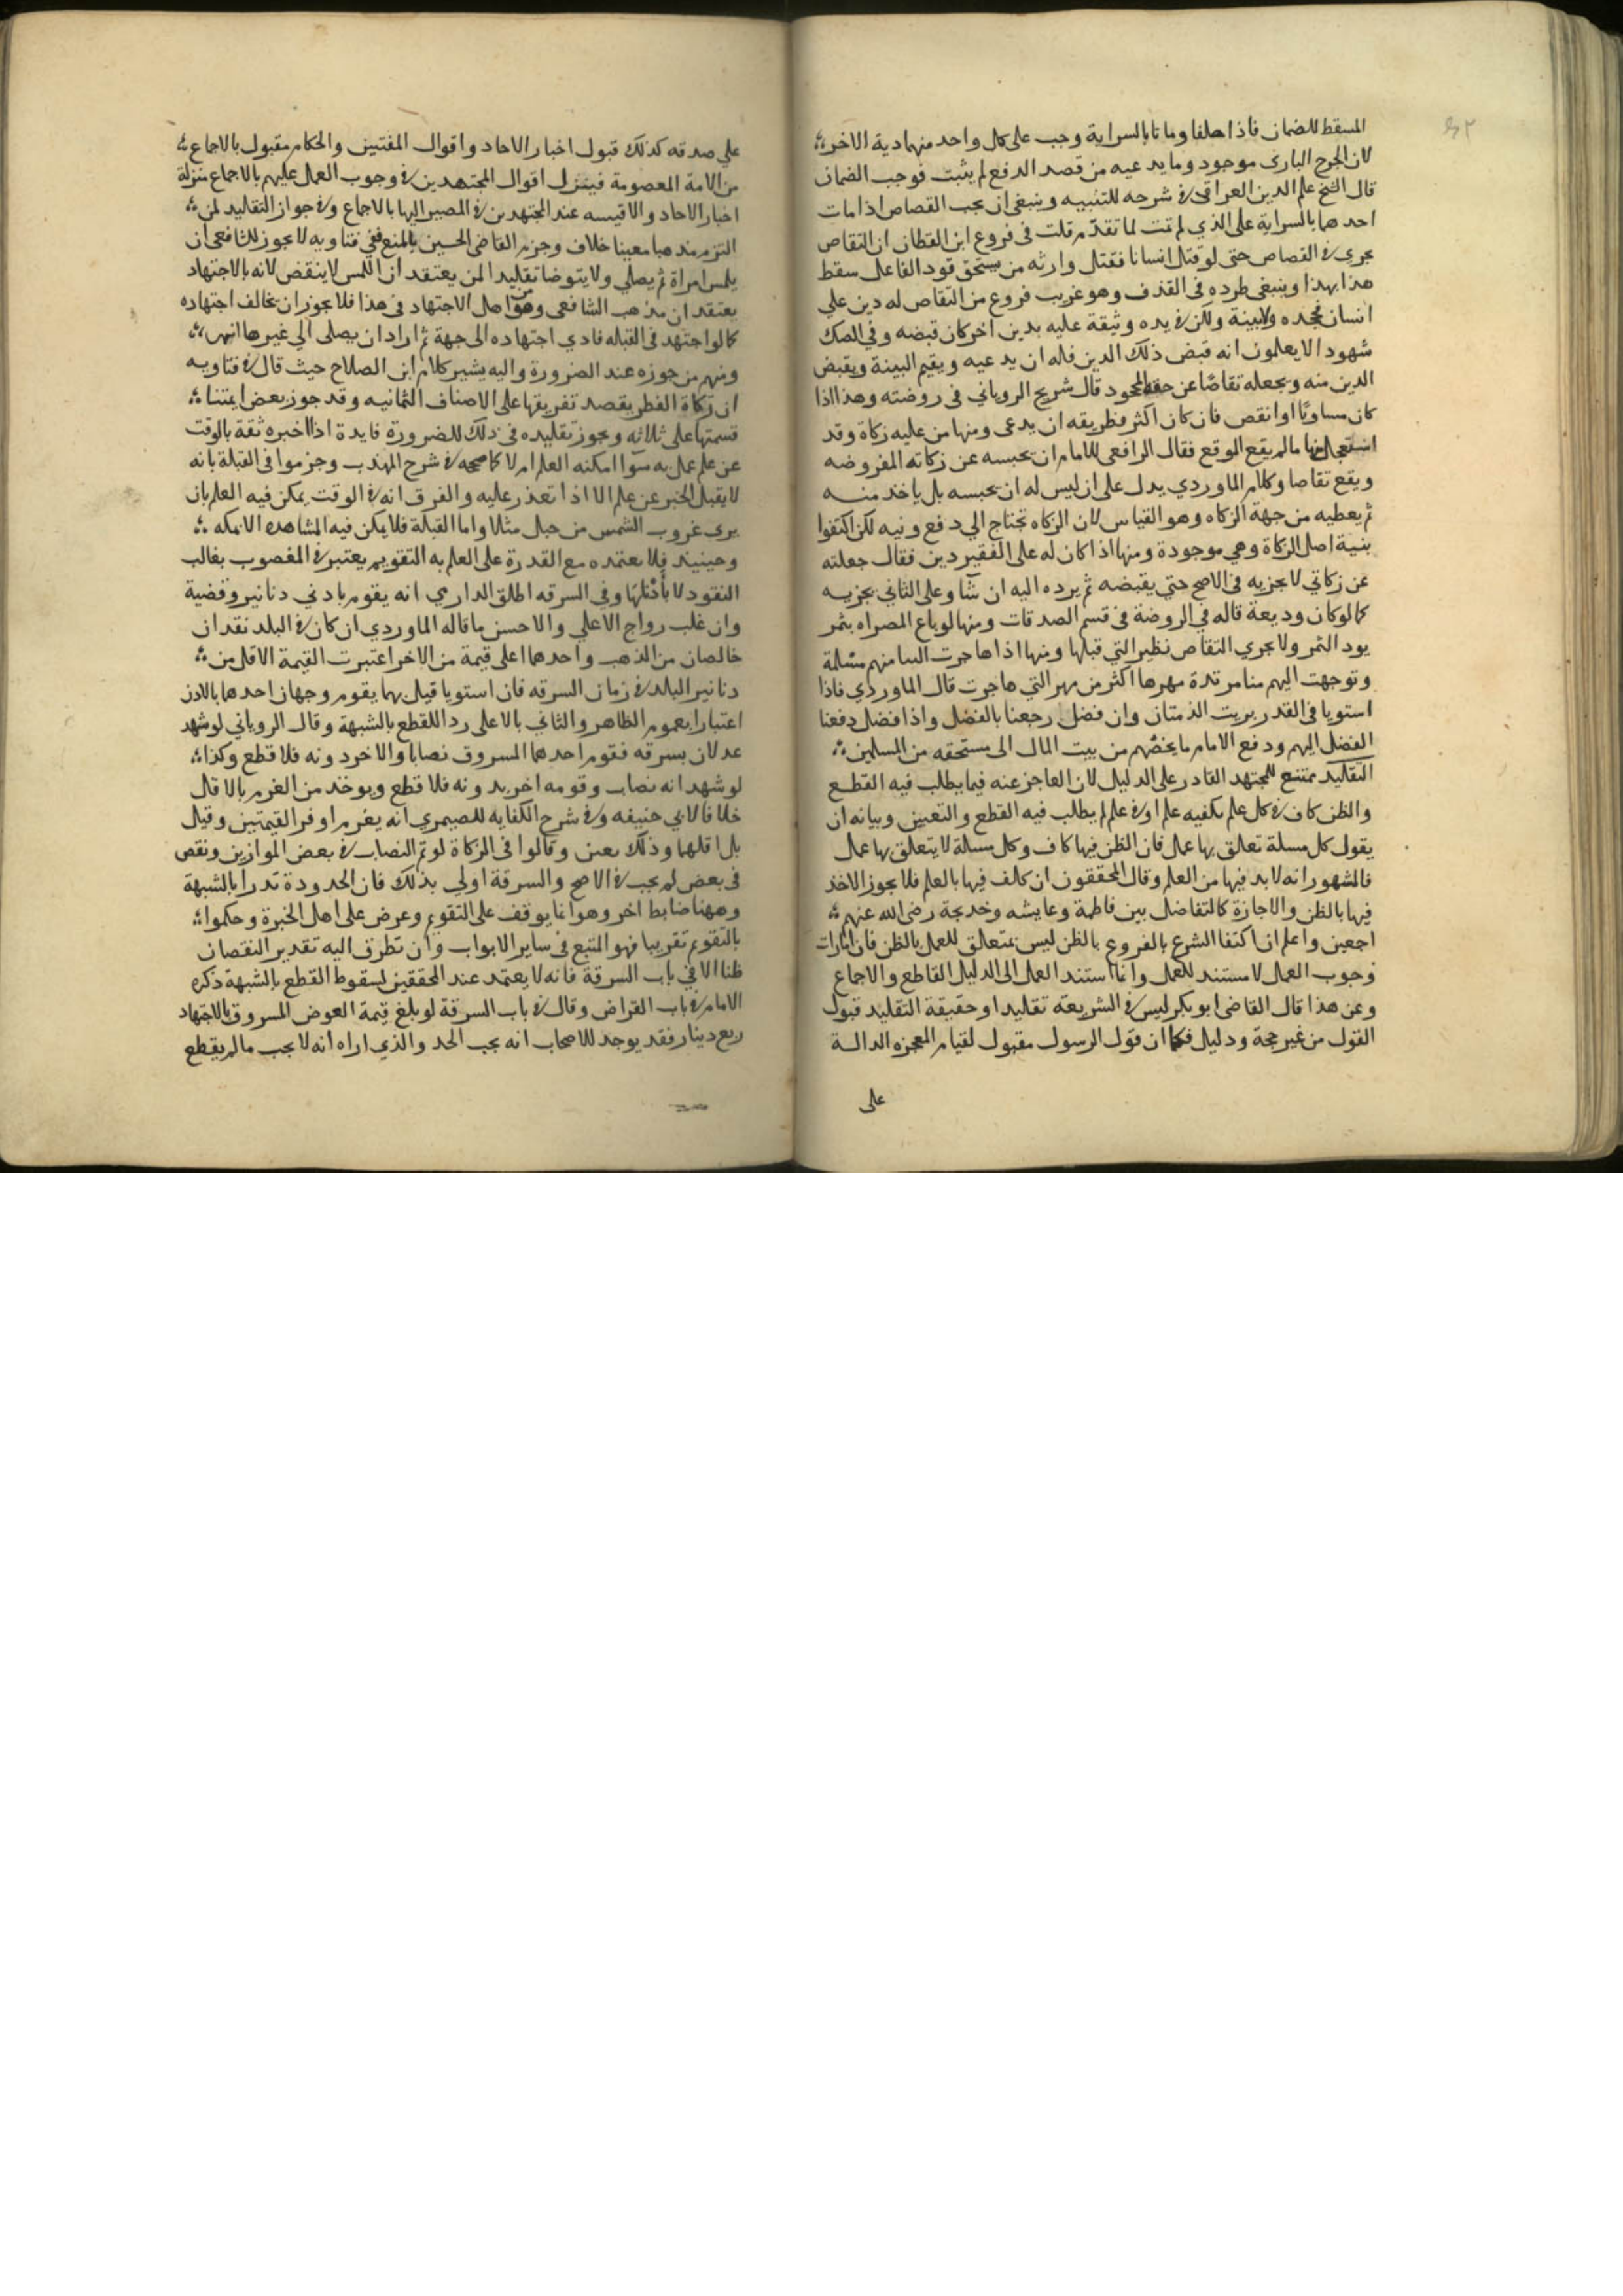 المسقط للضمان فاذا حلفا وماتا بالسراية وجب على كل واحد منهما دية الاخر
لان الجرح البارى موجود وما يدعيه من قصد الدفع لم يثبت فوجب الضمان
قال الشيخ علم الدين العراقى فى شرحه للتنبيه وينبغى ان يجب القصاص اذا مات
احدهما بالسراية على الذي لم تمت لما تقدم قلت فى فروع ابن القطان ان التقاص
يجرى فى القصاص حتى لو قتل انسانا فقتل وارثه من يستحق قود القاعل سقط
هذا بهذا وينبغى طرده فى القذف وهو غريب فروع من التقاص له دين على
انسان فجحده ولا بينة ولكن فى يده وثيقة عليه بدين اخر كان قبضه وفي الصك
شهود لا يعلمون انه قبض ذلك الدين فله ان يدعيه ويقيم البينة ويقبض
الدين منه ويجعله تقاصًا عن حقه المجحود قال شريح الروياني فى روضته وهذا اذا
كان مساويًا او انقص فان كان اكثر فطريقه ان يدعى ومنها من عليه زكاة وقد
استعجل منها ما لم يقع الموقع فقال الرافعى للامام ان يحبسه عن زكاته المفروضه
ويقع تقاصا وكلام الماوردي يدل على ان ليس له ان يحبسه بل ياخذ منه
ثم يعطيه من جهة الزكاه وهو القياس لان الزكاه تحتاج الي دفع ونيه لكن اكتفوا
بنية اصل الزكاة وهي موجودة ومنها اذا كان له على الفقير دين فقال جعلته
عن زكاتي لا يجزيه فى الاصح حتي يقبضه ثم يرده اليه ان شا وعلى الثاني يجزيه
كما لو كان وديعة قاله في الروضة فى قسم الصدقات ومنها لو باع المصراه بثمر
يود الثمر ولا يجري التقاص نظير التي قبلها ومنها اذا هاجرت الينا منهم مسلمة
وتوجهت اليهم منا مرتدة مهرها اكثر من مهر التي هاجرت قال الماوردي فاذا
استويا فى القدر بريت الذمتان وان فضل رجعنا بالفضل واذا فضل دفعنا
الفضل اليهم ودفع الامام ما يخصهم من بيت المال الى مستحقه من المسلمين
التقليد ممتنع للمجتهد القادر على الدليل لان العاجز عنه فيما يطلب فيه القطع
والظن كاف فى كل علم يكفيه علم او فى علم لم يطلب فيه القطع والتعيين وبيانه ان
يقول كل مسلة تعلق بها عمل فان الظن فيها كاف وكل مسلة لا يتعلق بها عمل
فالمشهور انه لا بد فيها من العلم وقال المحققون ان كلف فيها بالعلم فلا يجوز الاخذ
فيها بالظن والاجازة كالتفاضل بين فاطمة وعايشه وخديجة رضى الله عنهم
اجمعين واعلم ان اكتفا الشرع بالفروع بالظن ليس بمتعلق للعمل بالظن فان امارات
وجوب العمل لا مستند للعمل وانما استند العمل الى الدليل القاطع والاجماع
وعن هذا قال القاضى ابو بكر ليس فى الشريعة تقليد او حقيقة التقليد قبول
القول من غير حجة ودليل فكما ان قول الرسول مقبول لقيام المعجزه الدالة
على
على صدقه كذلك قبول اخبار الاحاد واقوال المفتين والحكام مقبول بالاجماع
من الامة المعصومة فينزل اقوال المجتهدين فى وجوب العمل عليهم بالاجماع منزلة
اخبار الاحاد والاقيسه عند المجتهدين فى المصير اليها بالاجماع وفى جواز التقليد لمن
التزم مذهبا معينا خلاف وجزم القاضى الحسين بالمنع ففي فتاويه لا يجوز للشافعى ان
يلمس امراة ثم يصلي ولا يتوضا تقليدا لمن يعتقد ان اللمس لا ينقض لانه بالاجتهاد
يعتقد ان مذهب الشافعى وهو من اهل الاجتهاد فى هذا فلا يجوز ان يخالف اجتهاده
كما لو اجتهد فى القبله فادي اجتهاده الى جهة ثم اراد ان يصلى الي غيرها انتهى
ومنهم من جوزه عند الضرورة واليه يشير كلام ابن الصلاح حيث قال فى فتاويه
ان زكاة الفطر يقصد تفريقها على الاصناف الثمانيه وقد جوز بعض ايمتنا
قسمتها على ثلاثه ويجوز تقليده فى ذلك للضرورة فايدة اذا اخبره ثقة بالوقت
عن علم عمل به سوا امكنه العلم ام لا كما صححه فى شرح المهذب وجزموا فى القبلة بانه
لا يقبل الخبر عن علم الا اذا تعذر عليه والفرق انه فى الوقت يمكن فيه العلم بان
يرى غروب الشمس من جبل مثلا واما القبلة فلا يمكن فيه المشاهده الا بمكه
وحينيذ فلا يعتمده مع القدرة على العلم به التقويم يعتبر فى المغصوب بغالب
النقود لا بأدناها وفي السرقه اطلق الدارمي انه يقوم بادني دنانير وقضية
وان غلب رواج الاعلي والاحسن ما قاله الماوردي ان كان فى البلد نقدان
خالصان من الذهب واحدهما اعلى قيمة من الاخر اعتبرت القيمة الاقل من
دنانير البلد فى زمان السرقه فان استويا قيل بهما يقوم وجهان احدهما بالادن
اعتبارا بعموم الظاهر والثاني بالاعلى رد اللقطع بالشبهة وقال الروياني لو شهد
عدلان بسرقه فقوم احدهما المسروق نصابا والاخر دونه فلا قطع وكذا
لو شهد انه نصاب وقومه اخر بدونه فلا قطع ويوخذ من الغرم بالاقل
خلافا لابي حنيفه وفى شرح الكفايه للصيمري انه يغرم اوفر القيمتين وقيل
بل اقلهما وذلك يعين وقالوا فى الزكاة لو تم النصاب فى بعض الموازين ونقص
فى بعض لم يجب فى الاصح والسرقة اولي بذلك فان الحدود ة تدرا بالشبهة
وههنا ضابط اخر وهو انا يوقف على التقويم وعرض على اهل الخبرة وحكموا
بالتقويم تقريبا فهو المتبع فى ساير الابواب وان تطرق اليه تقدير النقصان
ظنا الا في باب السرقة فانه لا يعتمد عند المحققين لسقوط القطع بالشبهة ذكره
الامام فى باب القراض وقال فى باب السرقة لو بلغ قيمة العوض المسروق بالاجتهاد
ربع دينار فقد يوجد للاصحاب انه يجب الحد والذي اراه انه لا يجب ما لم يقطع